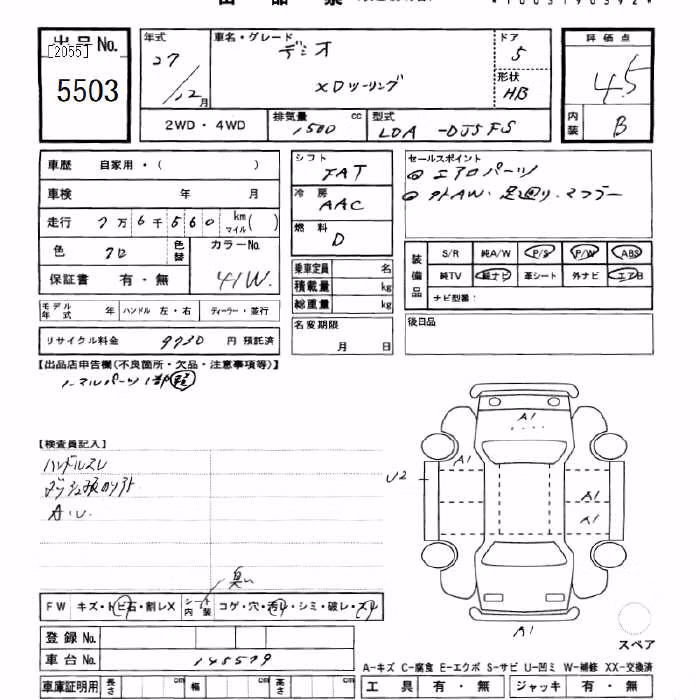 出品No.
[2055]
5503
年式
27
12月
車名・グレード
デミオ
XDツーリング
ドア
5
形状
HB
評価点
4.5
内装
B
2WD・4WD
排気量
1500
cc
型式
LDA-DJ5FS
車歴 自家用・( )
車検 年 月
走行 7万6千560 km マイル( )
色 クロ
色替
カラーNo.
41W.
保証書 有・無
モデル年式 年
ハンドル 左・右
ディーラー・並行
リサイクル料金 9930 円 預託済
シフト
FAT
冷房
AAC
燃料
D
乗車定員 名
積載量 kg
総重量 kg
名変期限
月 日
セールスポイント
◎エアロパーツ
◎外AW.足廻り.マフラー
装備品
S/R 純A/W P/S P/W ABS
純TV 純ナビ 革シート 外ナビ エアB
ナビ型番:
後日品
【出品店申告欄(不良箇所・欠品・注意事項等)】
ノーマルパーツ1部
【検査員記入】
ハンドルスレ
A.U.
FW キズ・トビ石・割レX
シート内装 コゲ・穴・汚レ・シミ・破レ・スレ
臭い
登録No.
車台No. 145579
車庫証明用 長さ cm 幅 cm 高さ cm
A1
A1
U2
A1
A1
A1
スペア
A-キズ C-腐食 E-エクボ S-サビ U-凹ミ W-補修 XX-交換済
工具 有・無 ジャッキ 有・無